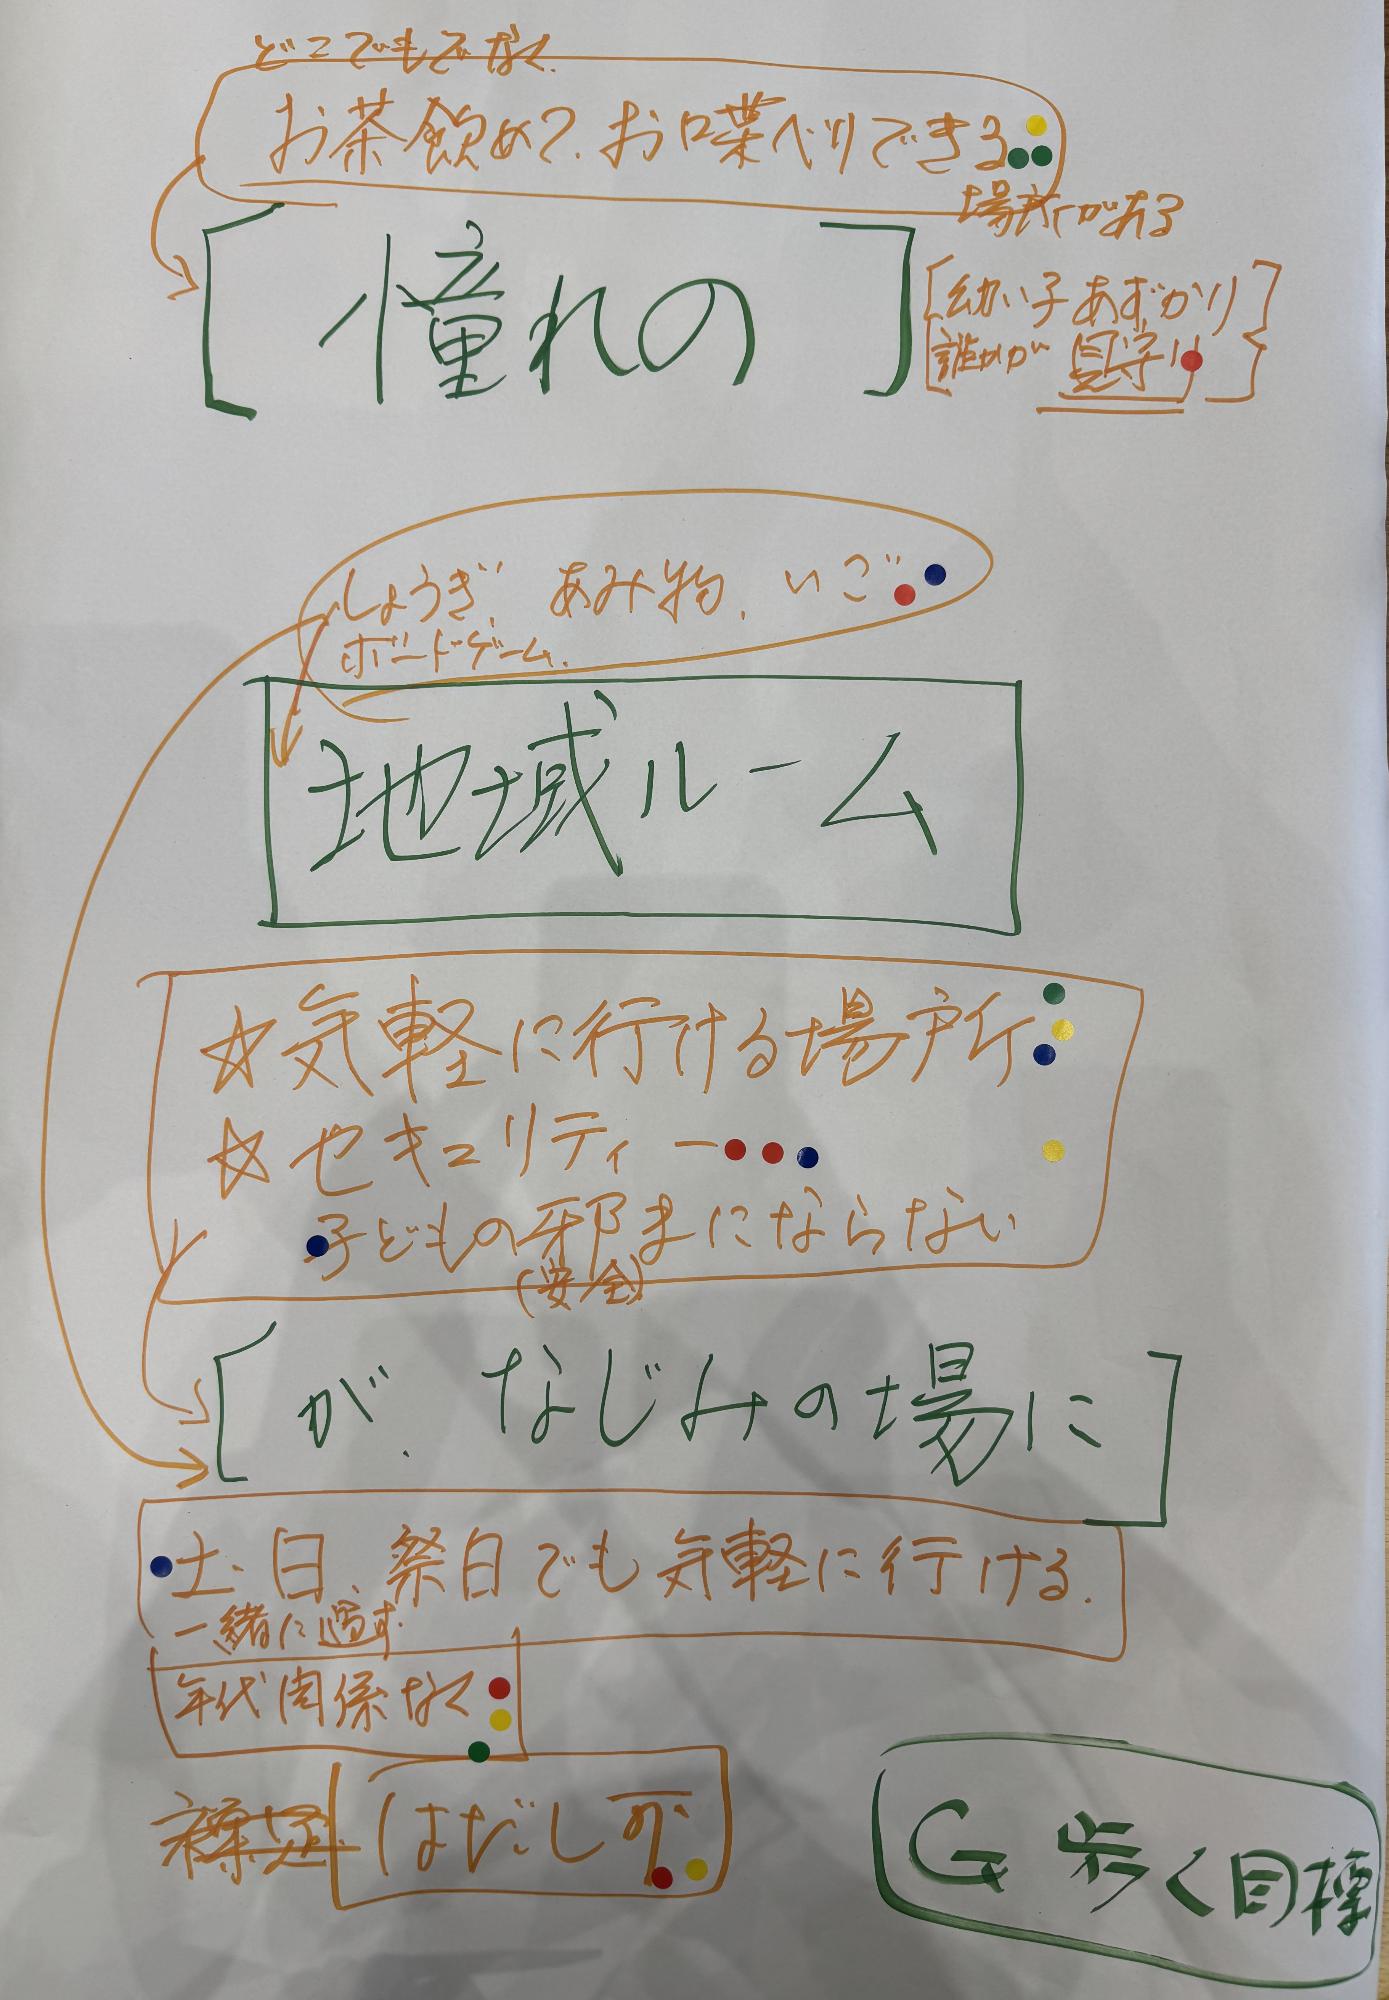 どこでもでなく
お茶飲めて、お喋べりできる
場所がある
憧れの
幼い子あずかり
誰かが 見守り
しょうぎ、あみ物、いご
ボードゲーム、
地域ルーム
☆気軽に行ける場所
☆セキュリティー
子どもの邪まにならない
(安全)
が、なじみの場に
土、日、祭日でも気軽に行ける、
一緒に過す
年代関係なく
はだし可
G 歩く目標